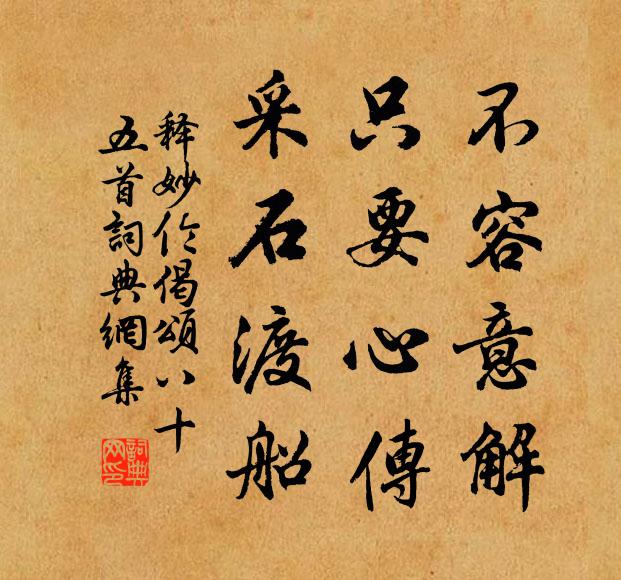 不容意解
只要心傳
采石渡船
释妙伦偈頌八十
五首詞典網集
詞典
网印